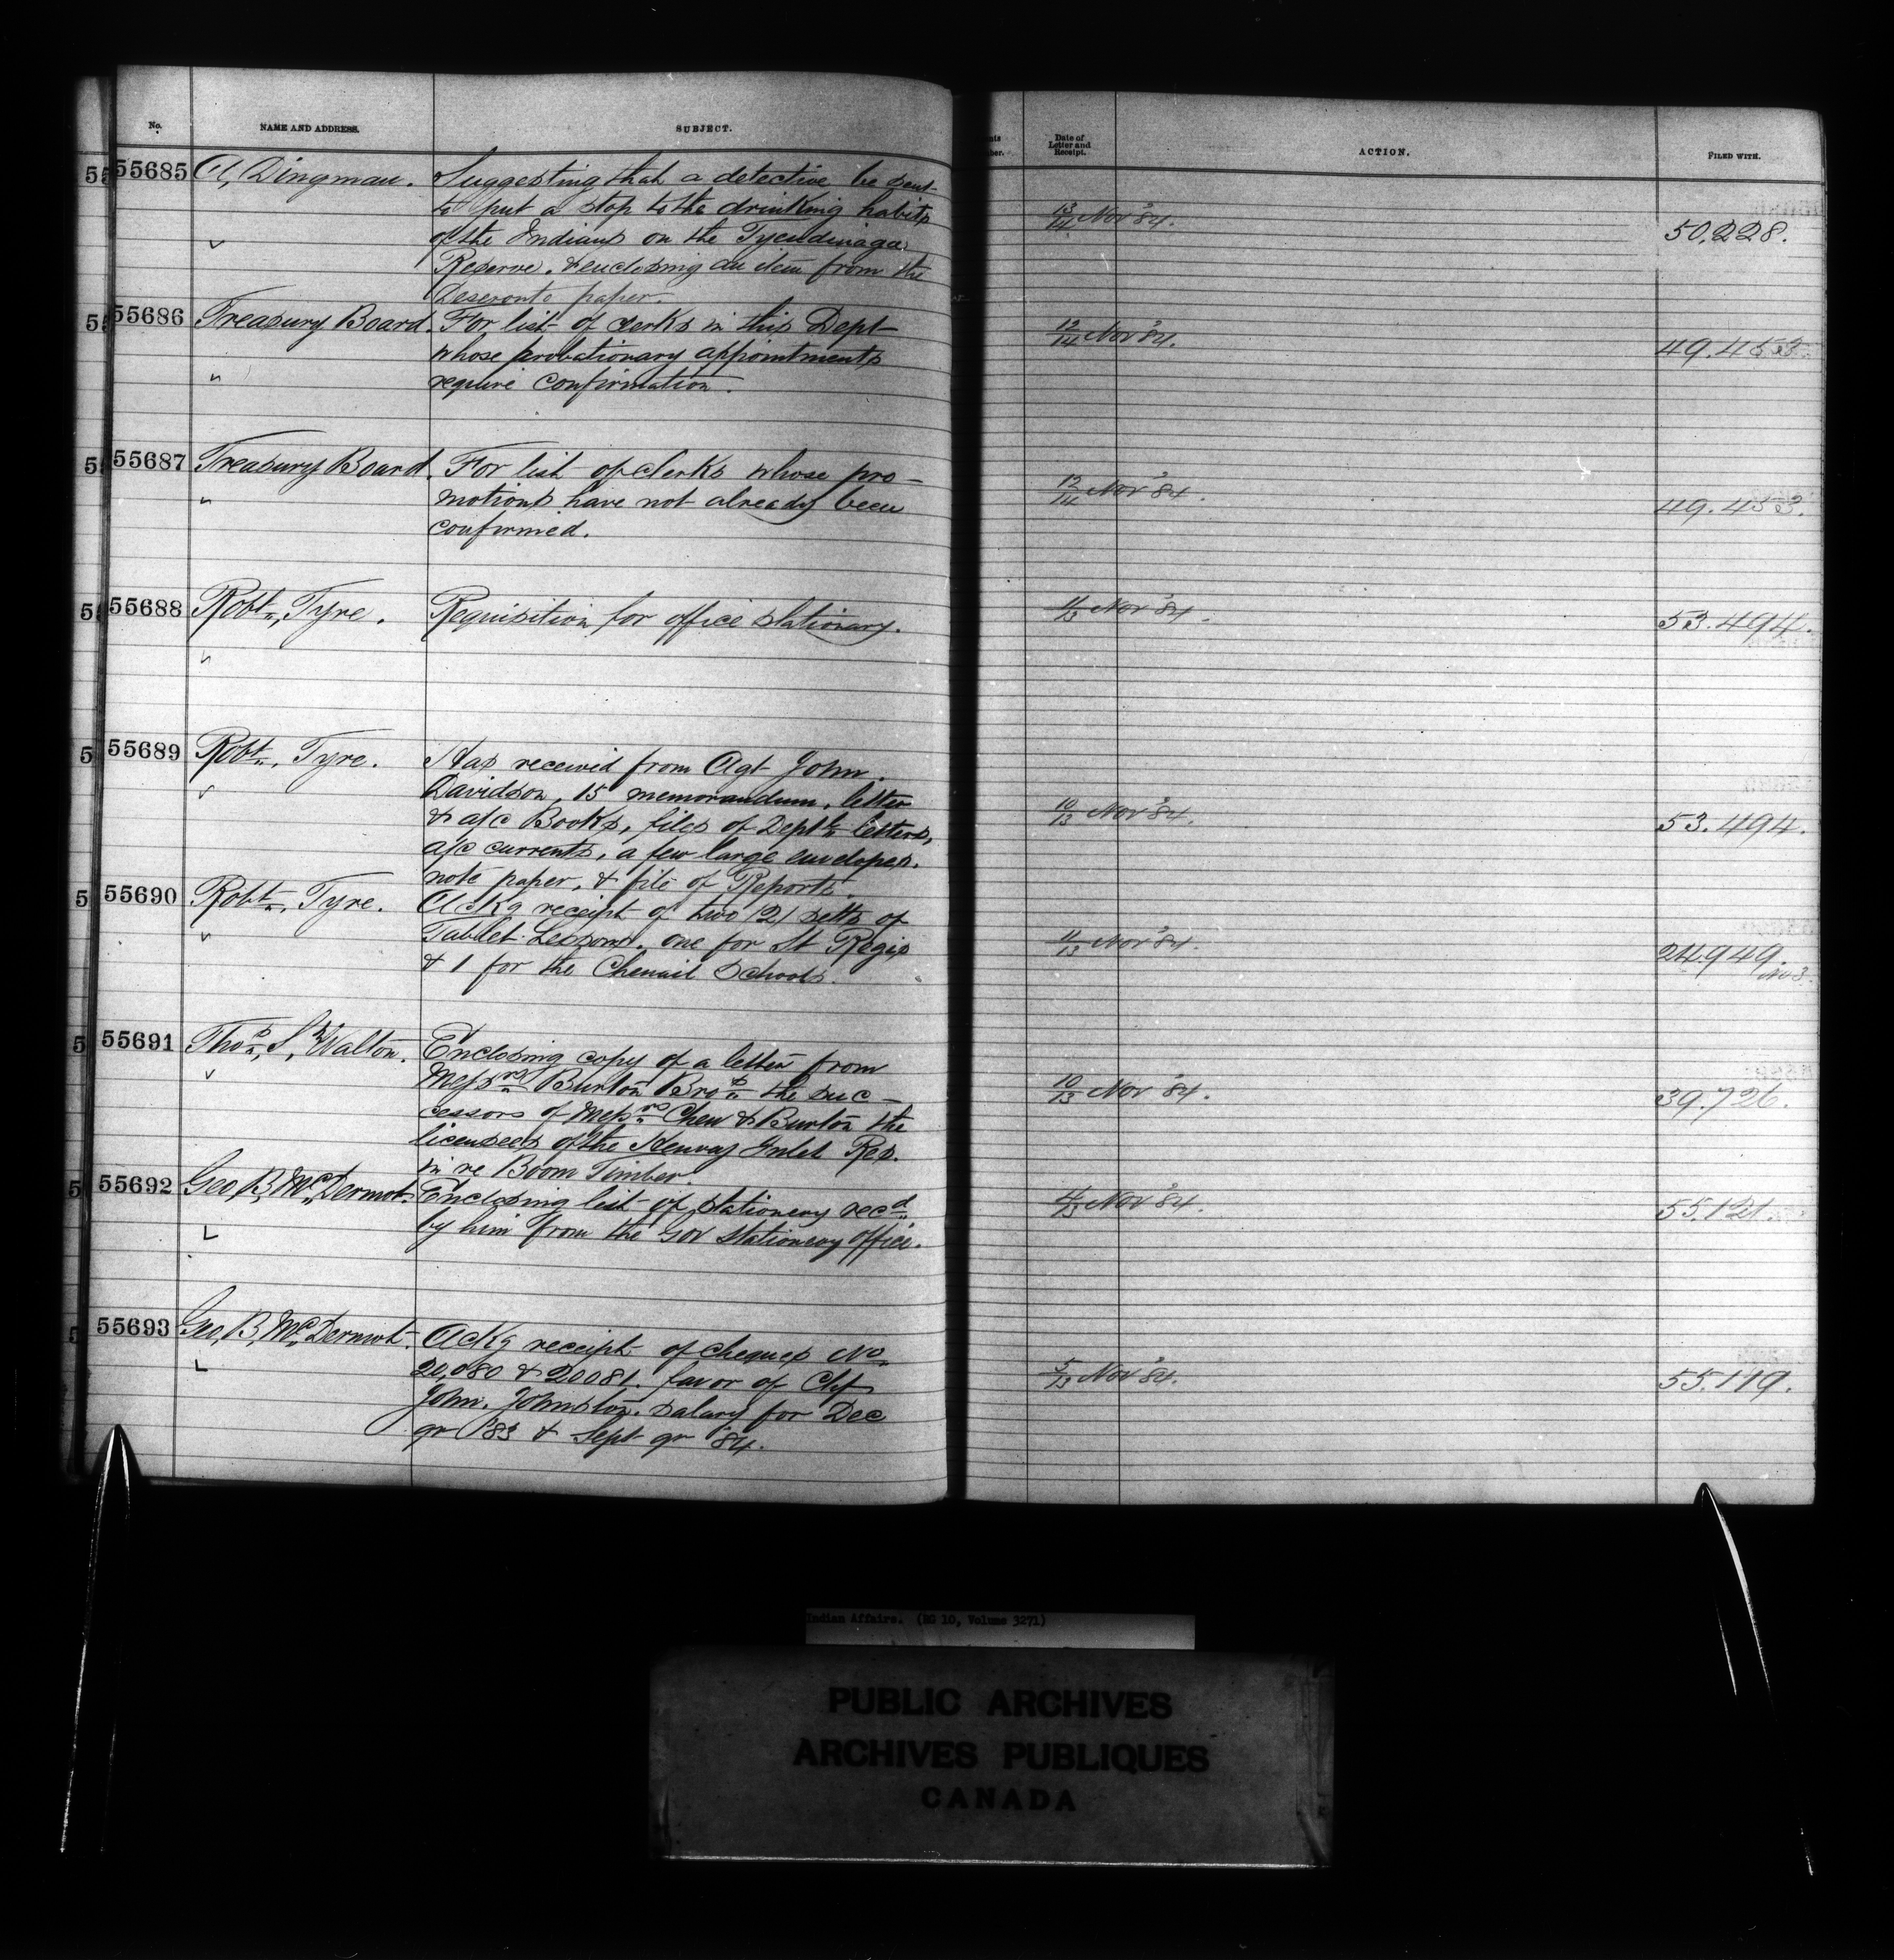 No.
NAME AND ADDRESS.
SUBJECT.
Date of
Letter and
Receipt.
ACTION.
FILED WITH.
55685 A, Dingman. Suggesting that a detective be sent
to put a stop to the drinking habits
of the Indians on the Tyendinaga
Reserve. & enclosing an item from the
Deseronto paper.
13/14 Nov '84.
50,228.
55686 Treasury Board. For list of clerks in this Dept
whose probationary appointments
require confirmation.
12/14 Nov '84.
49.453
55687 Treasury Board. For list of clerks whose pro-
motions have not already been
confirmed.
12/14 Nov '84.
49.453.
55688 Robt., Tyre. Requisition for office stationary.
11/13 Nov '84.
53.494.
55689 Robt., Tyre. Has received from Agt John
Davidson, 15 memorandum, letter
& a/c Books, files of Deptl letters,
a/c currents, a few large envelopes.
note paper, & file of Reports.
10/13 Nov '84.
53.494.
55690 Robt., Tyre. Ackg receipt of two (2) setts of
Tablet Lessons. one for St Regis
& 1 for the Chenail Schools.
11/13 Nov '84.
24,949.
No 3.
55691 Thos, S, Walton. Enclosing copy of a letter from
Messrs Burton Bros the suc-
cessors of Messrs Chew & Burton the
licensees of the Henvay Inlet Res.
in re Boom Timber.
10/13 Nov '84.
39.726.
55692 Geo B, Mc, Dermot. Enclosing list of stationery recd
by him from the Gov Stationery Office.
4/13 Nov '84.
55.121.
55693 Geo, B, Mc, Dermot. Ackg receipt of cheques No
20,080 & 20081. favor of Chf
John. Johnston. salary for Dec
qr '83 & Sept qr '84.
5/13 Nov '84.
55.119.
Indian Affairs. (RG 10, Volume 3271)
PUBLIC ARCHIVES
ARCHIVES PUBLIQUES
CANADA